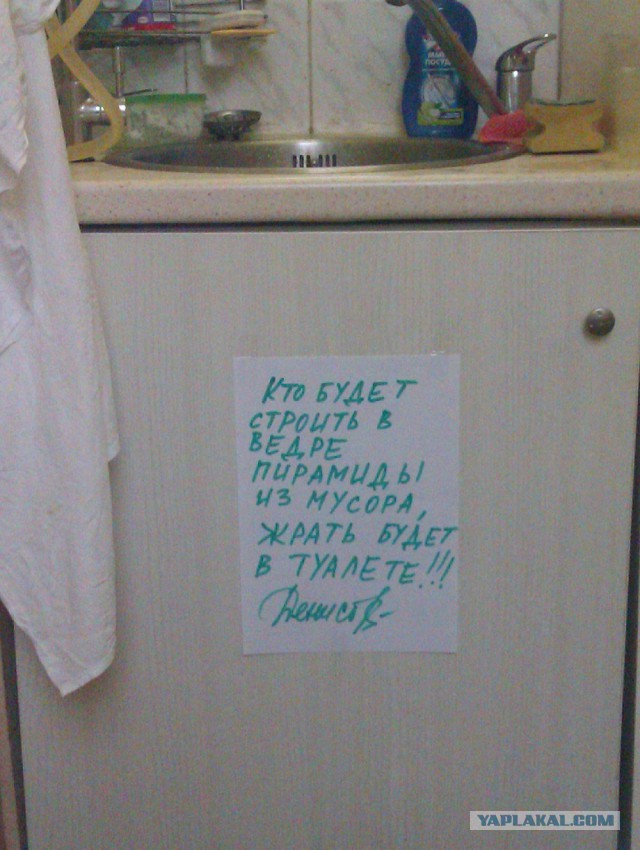 КТО БУДЕТ
СТРОИТЬ В
ВЕДРЕ
ПИРАМИДЫ
ИЗ МУСОРА,
ЖРАТЬ БУДЕТ
В ТУАЛЕТЕ!!!
YAPLAKAL.COM